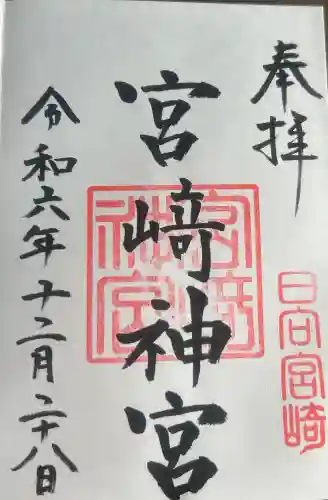 奉拝
日向宮崎
宮﨑神宮
令和六年十二月二十八日